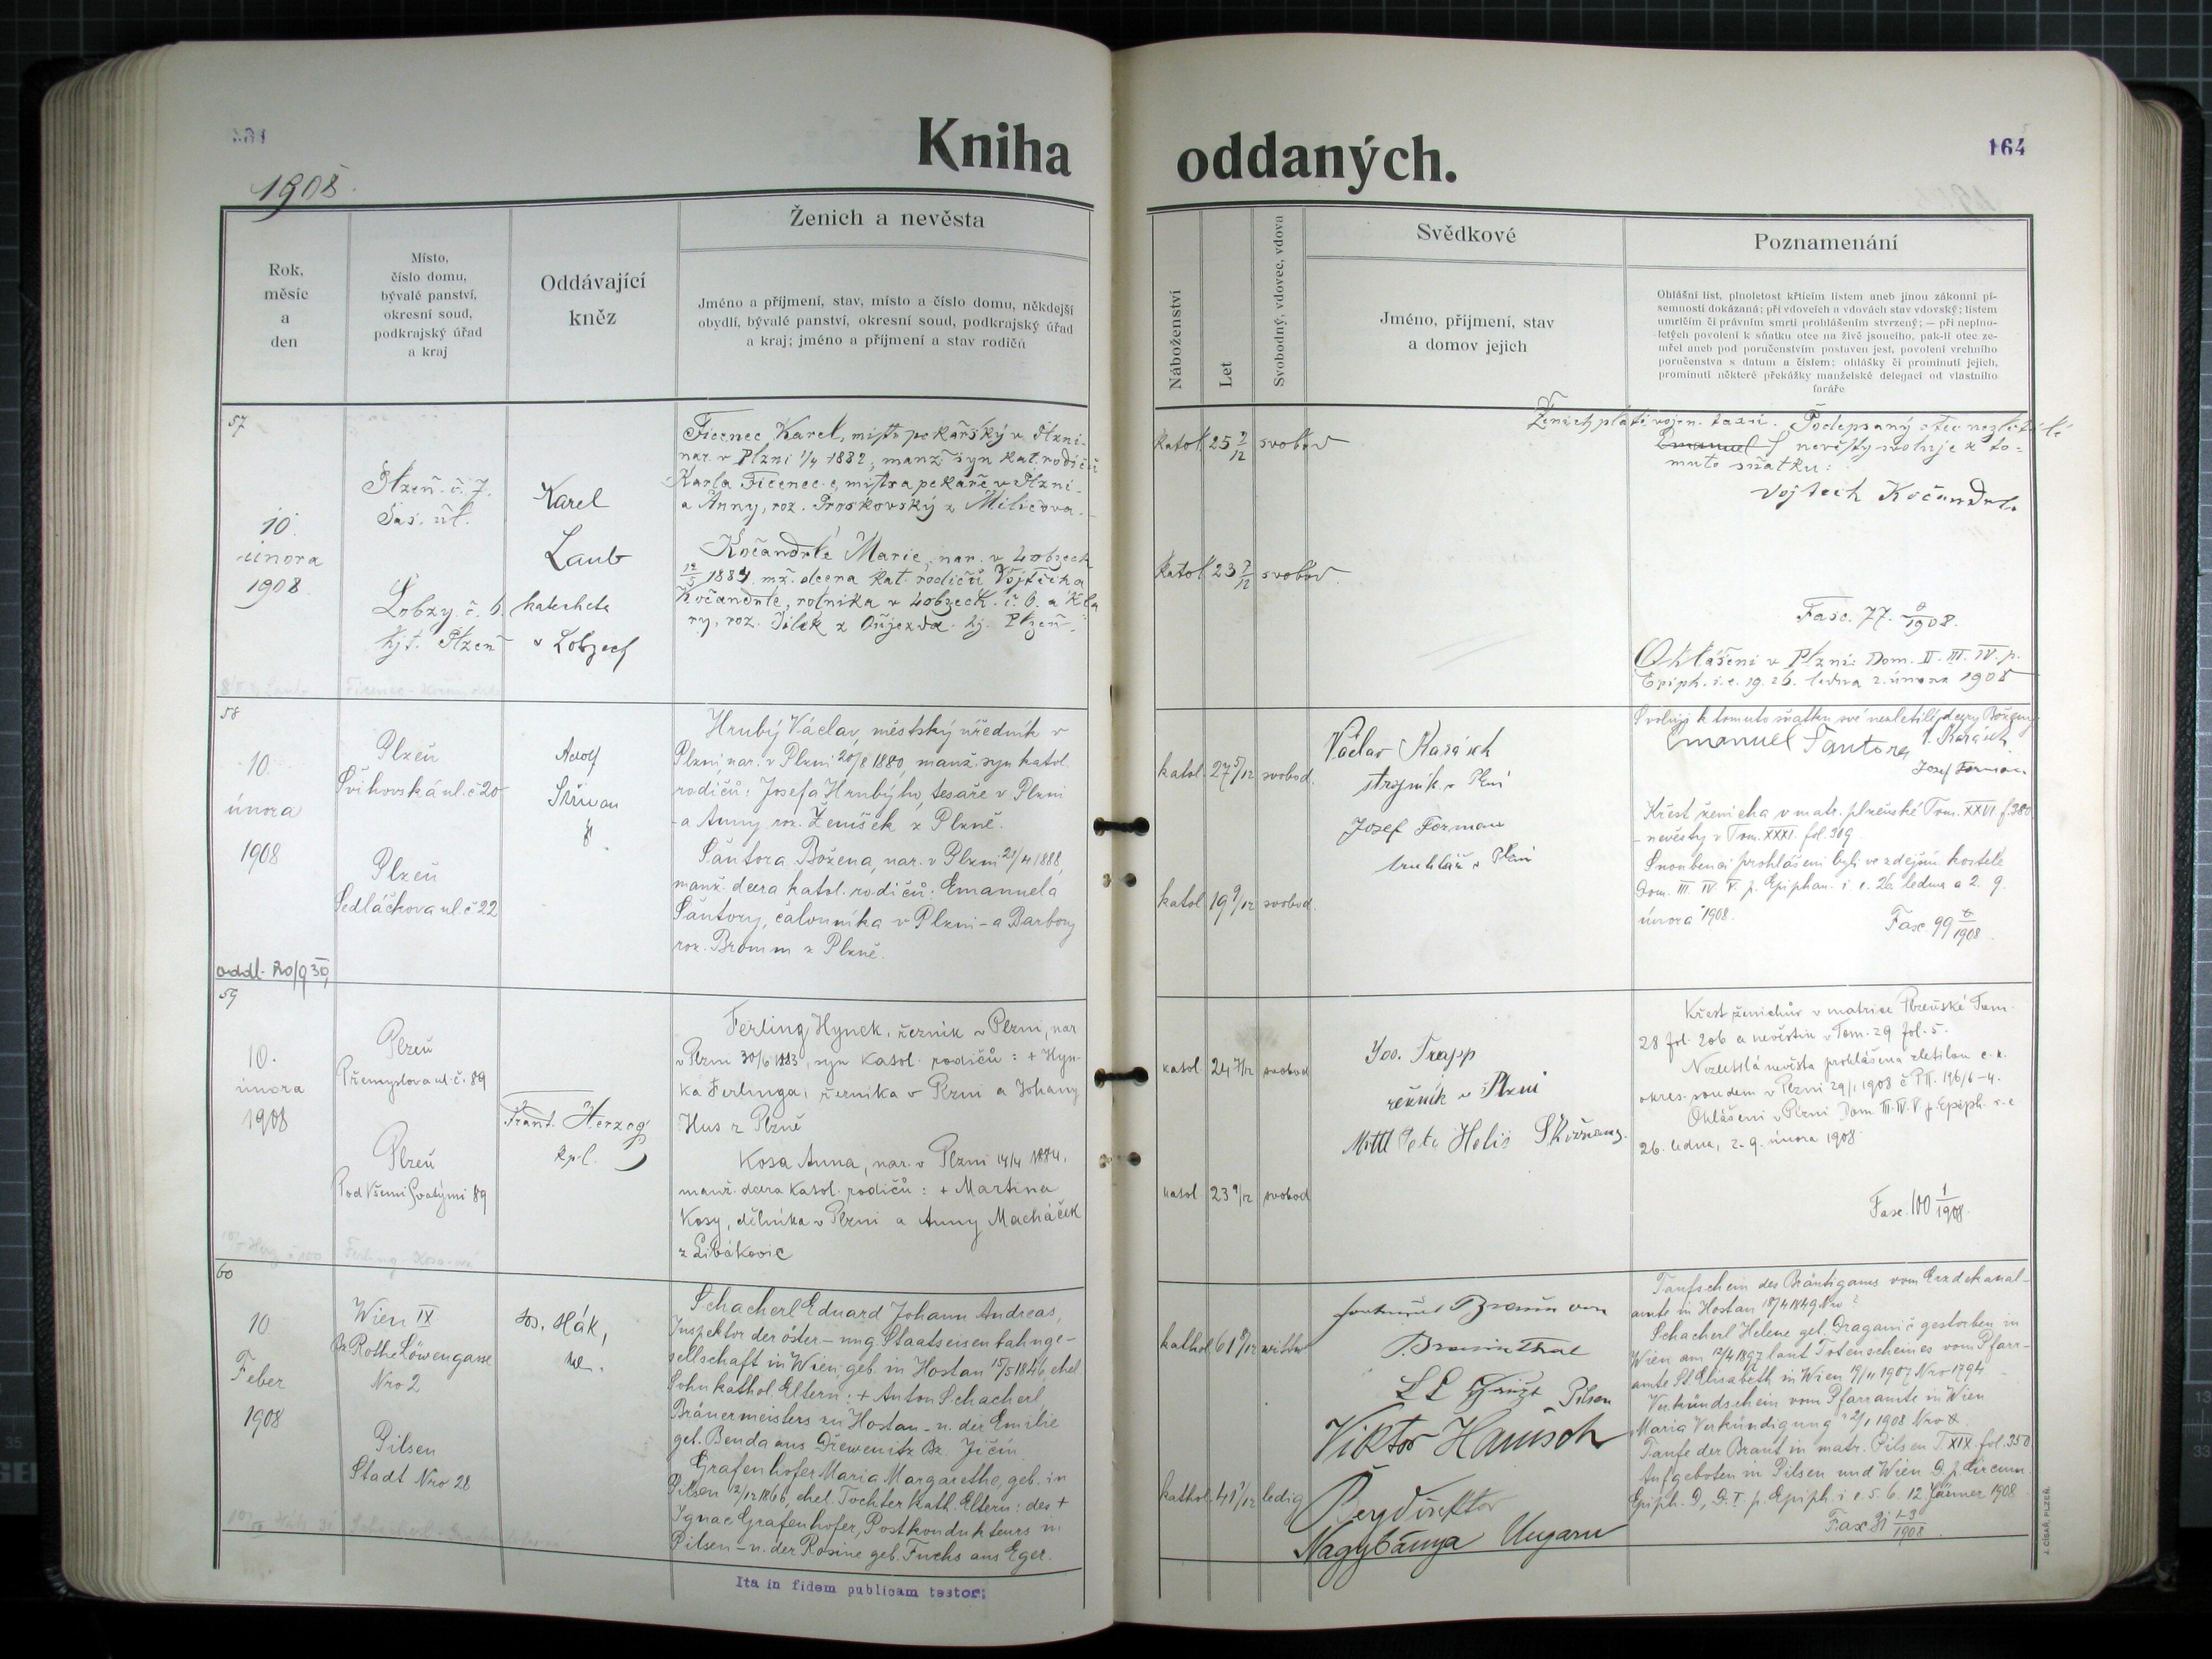 Kniha
1908.
Rok,
měsíc
a
den
Místo,
číslo domu,
bývalé panství,
okresní soud,
podkrajský úřad
a kraj
Oddávající
kněz
Ženich a nevěsta
Jméno a příjmení, stav, místo a číslo domu, někdejší
obydlí, bývalé panství, okresní soud, podkrajský úřad
a kraj; jméno a příjmení a stav rodičů
57
10.
února
1908
Plzeň. č. 7.
Sas. ul.
Lobzy. č. 6.
hjt. Plzeň
Karel
Laub
katecheta
v Lobzech
Ficenec Karel, mistr pekařský v Plzni
nar. v Plzni 1/4 1882, manž syn kat. rodičů
Karla Ficence, mistra pekaře v Plzni
a Anny, roz. Proskovský z Miličova.
Kočandrle Marie, nar. v Lobzech
12/5 1884. mž. dcera kat. rodičů Vojtěcha
Kočandrle, rolníka v Lobzech. č. 6. a Kla
ry, roz. Šilek z Oujezda. hj. Plzeň.
58
10.
února
1908
Plzeň
Švihovská ul. č 20
Plzeň
Sedláčkova ul. č 22
Adolf
Hrubý Václav, městský úředník v
Plzni, nar. v Plzni 20/8 1880, manž. syn katol.
rodičů: Josefa Hrubýho, tesaře v Plzni
a Anny roz. Ženíšek z Plzně.
Šantora Božena, nar. v Plzni 21/4 1888,
manž. dcera katol. rodičů: Emanuela
Šantory, čalouníka v Plzni - a Barbory
roz. Bromm z Plzně.
oddl. 20/9 30,
59
10.
února
1908
Plzeň
Přemyslova ul. č. 89
Plzeň
Pod Všemi Svatými 89
Frant. Herzog
kpl.
Ferling Hynek, řezník v Plzni, nar.
v Plzni 30/6 1883, syn katol. rodičů: + Hyn-
ka Ferlinga, řezníka v Plzni a Johany
Hus z Plzně
Kosa Anna, nar. v Plzni 14/4 1884.
manž. dcera katol. rodičů: + Martina
Kosy, dělníka v Plzni a Anny Macháček
z Libákovic
60
10
Feber
1908
Wien IX
Bz Rothe Löwengasse
Nro 2
Pilsen
Stadt Nro 28
Jos. Hák,
Schacherl Eduard Johann Andreas,
Inspektor der öster-ung. Staatseisenbahnge-
sellschaft in Wien, geb. in Hostau 15/5 1846, ehel.
Sohn kathol. Eltern: + Anton Schacherl,
Bräuermeisters zu Hostau - u. der Emilie
geb. Benda aus Dřewenitz Bz. Jičín.
Grafenhofer Maria Margarethe, geb. in
Pilsen 12/12 1866, ehel. Tochter kath. Eltern: des +
Ignac Grafenhofer, Postkondukteurs in
Pilsen - u. der Rosine geb. Fuchs aus Eger.
Ita in fidem publicam testor:
oddaných.
164
Náboženství
Let
Svobodný, vdovec, vdova
Svědkové
Jméno, příjmení, stav
a domov jejich
Poznamenání
Ohlášní list, plnoletost křticím listem aneb jinou zákonní pí-
semností dokázaná; při vdovcích a vdovách stav vdovský; listem
umrlčím či právním smrti prohlášením stvrzený; — při neplno-
letých povolení k sňatku otce na živě jsoucího, pak-li otec ze-
mřel aneb pod poručenstvím postaven jest, povolení vrchního
poručenstva s datum a číslem; ohlášky či prominutí jejich,
prominutí některé překážky manželské delegací od vlastního
faráře
katol. 25 7/12 svobod
katol 23 7/12 svobod
Ženich platí vojen. taxu. Podepsaný otec nezletilé
nevěsty svoluje k to-
muto sňatku:
Vojtech Kočandrle
Fasc. 77. 8/1908.
Ohlášeni v Plzni: Dom. II. III. IV. p.
Epiph. i.e. 19. 26. ledna 2. února 1908
katol. 27 5/12 svobod.
katol 19 9/12 svobod.
Václav Karásek
Josef Forman
truhlář v Plzni
Svoluji k tomuto sňatku své nezletilé dcery Boženy
Emanuel Šantora V. Karásek
Josef Forman
Křest ženicha v matr. plzeňské Tom. XXVI. f. 280
- nevěsty v Tom. XXXI. fol. 319.
Snoubenci prohlášeni byli ve zdejším kostele
Dom. III. IV. V. p. Epiphan. i. e. 26. ledna a 2. 9.
února 1908.
Fasc 99 6/1908.
katol 24 7/12 svobod
katol 23 9/12 svobod
Jos. Trapp
řezník v Plzni
Křest ženichův v matrice Plzeňské Tom.
28 fol. 206 a nevěstin v Tom. 29 fol. 5.
Nezletilá nevěsta prohlášena zletilou c. k.
okres. soudem v Plzni 29/1 1908 č P II. 196/6-4.
Ohlášeni v Plzni Dom III. IV. V p. Epiph. i. e
26. ledna, 2. 9. února 1908
Fasc. 100 1/1908.
kathol 61 8/12 wittw
kathol. 41 2/12 ledig
Braun von
Braunthal
Pilsen
Viktor Hanisch
Bergdirektor
Nagybánya Ungarn
Taufschein des Bräutigams vom Erzdekanal-
amte in Hostau 18/4 1849 Nro ?
Schacherl Helene geb. Draganič gestorben in
Wien am 12/4 1897 laut Totenscheines vom Pfarr-
amte St. Elisabeth in Wien 19/11 1907 Nro 1794
Verkündschein vom Pfarramte in Wien
"Maria Verkündigung" 21/1 1908 Nro
Taufe der Braut in matr. Pilsen T. XIX. fol. 350
Aufgeboten in Pilsen und Wien D. p. Circum.
Epiph. D, D. I. p. Epiph. i. e. 5. 6. 12. Jänner 1908
Fasc 31 1-3/1908.
J. CÍSAŘ, PLZEŇ.